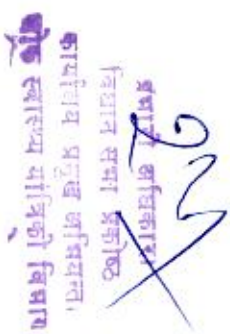 प्रभारी अधिकारी
विधान सभा प्रकोष्ठ
कार्यालय प्रमुख अभियन्ता
स्वास्थ्य यांत्रिकी विभाग